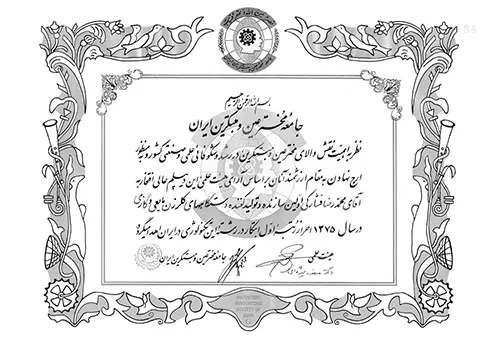 بسم الله الرحمن الرحیم
جامعه مخترعین و مبتکرین ایران
نظر به اهمیت نقش والای مخترعین و مبتکرین در رشد و شکوفائی علمی و صنعتی کشور و به منظور
ارج نهادن به مقام ارزشمند آنان بر اساس آرای هیئت علمی این دیپلم عالی افتخار به
آقای محمدرضا فشارکی اولین سازنده و تولید کننده دستگاههای کلرزن مایعی و گازی
در سال ۱۳۷۵ احراز رتبه اول ابتکار در رشته این تکنولوژی در ایران اهدا میگردد
هیئت علمی
جامعه مخترعین و مبتکرین ایران
INVENTORS
INNOVATORS
SOCIETY OF
IRAN